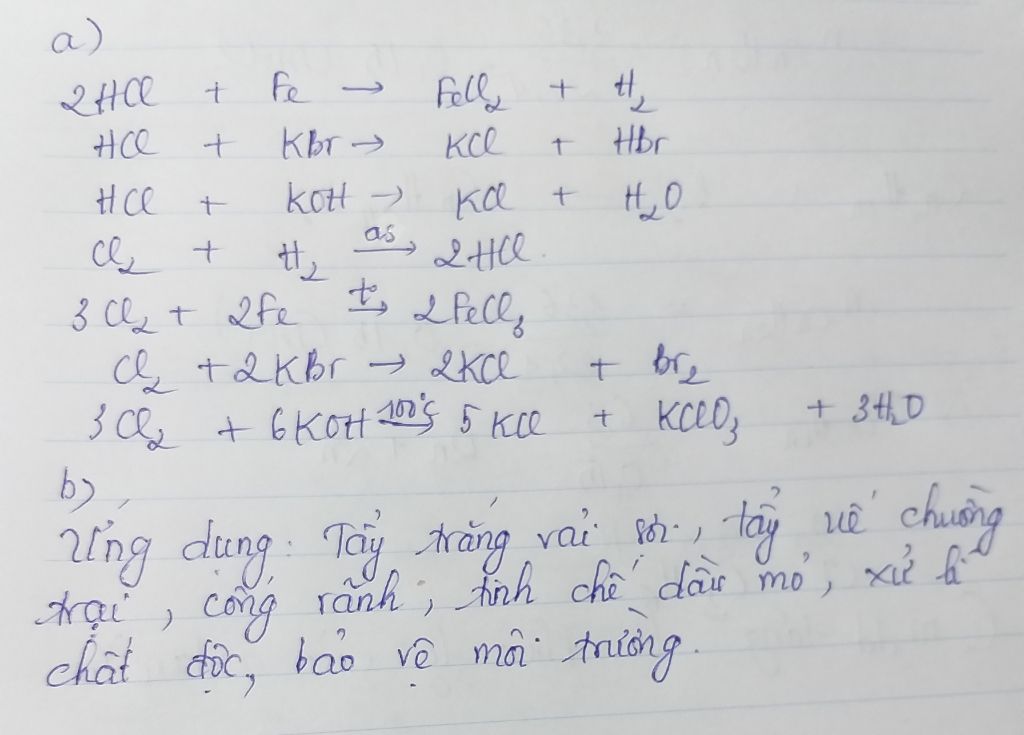 a)
2HCl + Fe → FeCl₂ + H₂
HCl + KBr → KCl + HBr
HCl + KOH → KCl + H₂O
Cl₂ + H₂ →(as) 2HCl.
3Cl₂ + 2Fe →(t°) 2FeCl₃
Cl₂ + 2KBr → 2KCl + Br₂
3Cl₂ + 6KOH →(100°C) 5KCl + KClO₃ + 3H₂O
b)
Ứng dụng: Tẩy trắng vải sợi, tẩy uế chuồng
trại, cống rãnh, tinh chế dầu mỏ, xử lí
chất độc, bảo vệ môi trường.